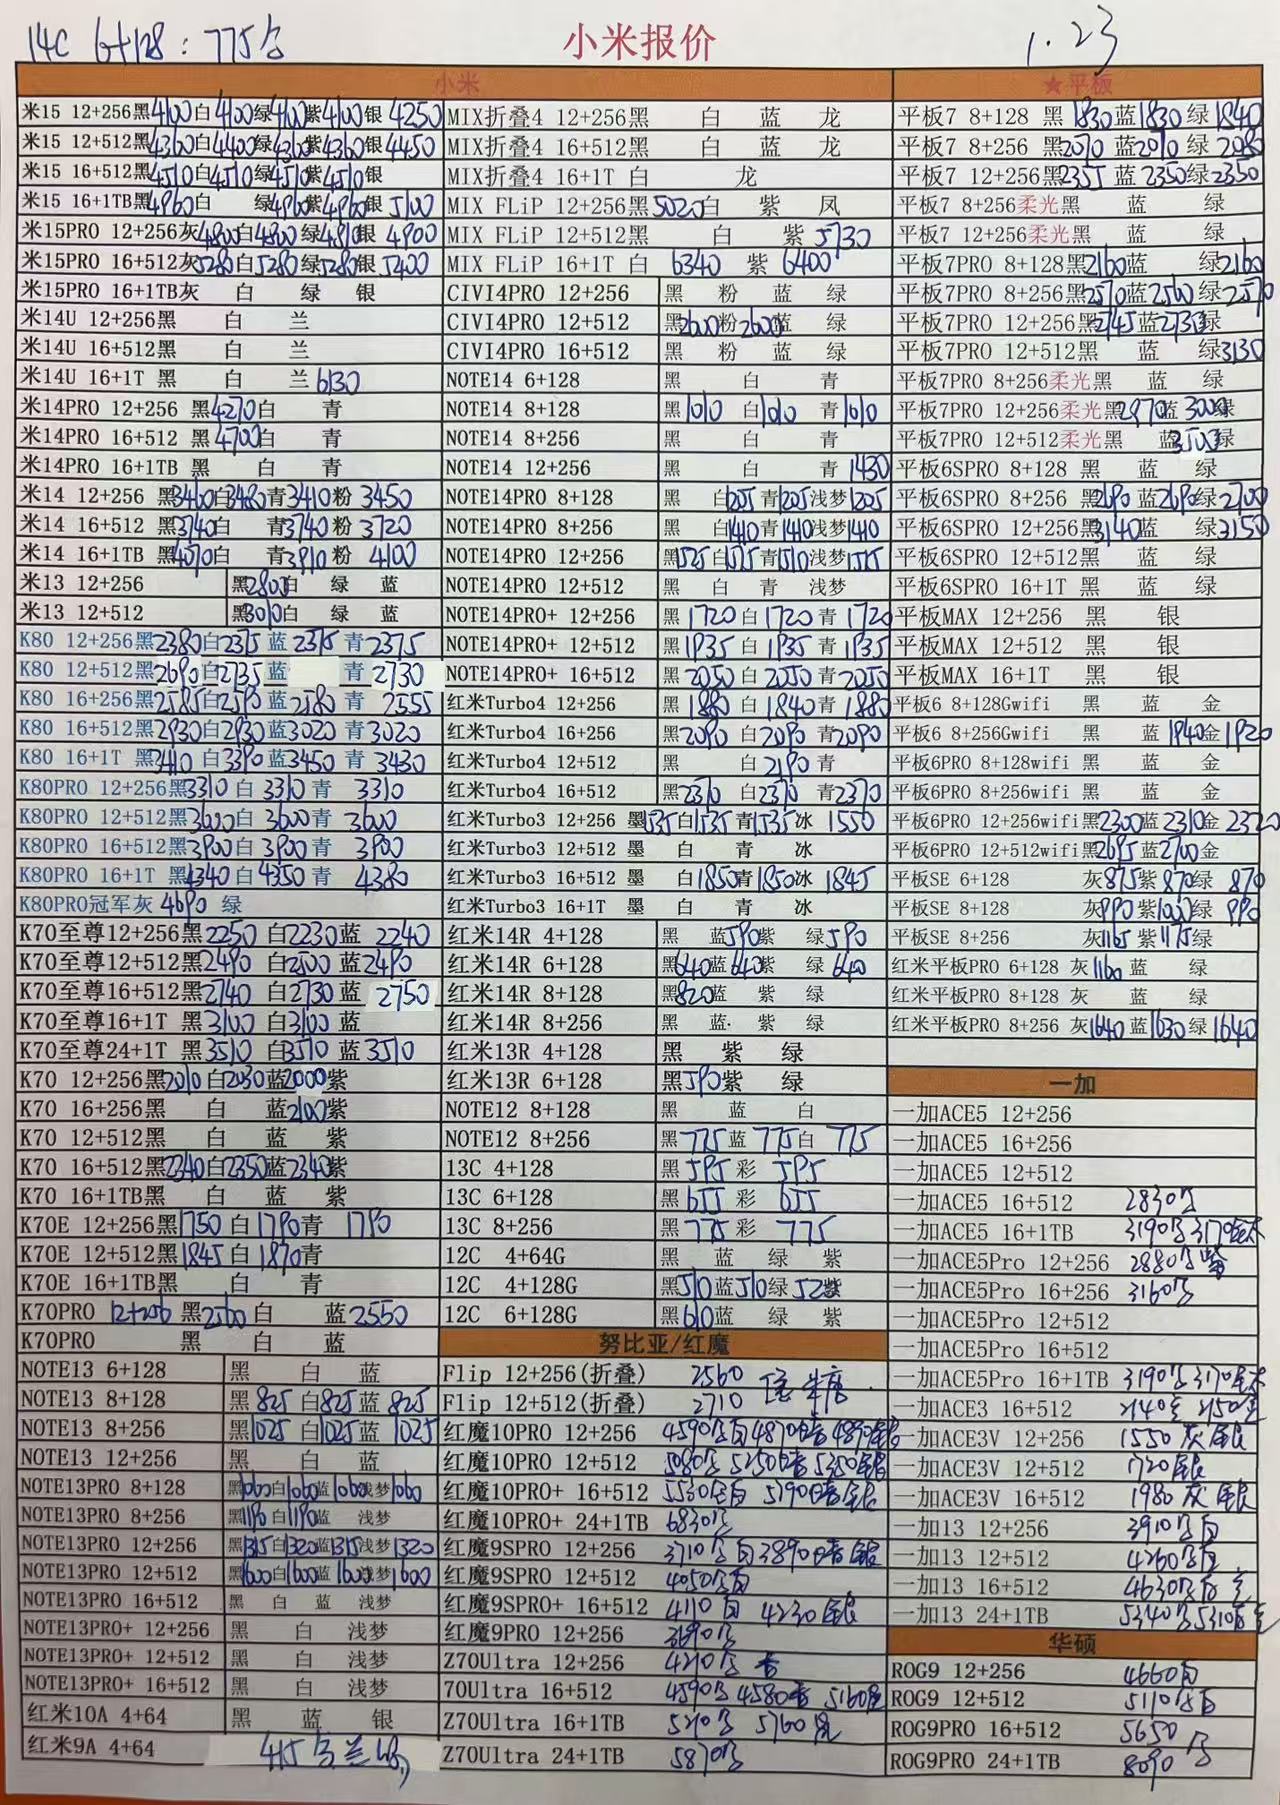 14C 6+128：775
小米报价
1.23
小米
米15 12+256黑4100白4100绿4100紫4100银 4250
米15 12+512黑4360白4400绿4360紫4360银 4450
米15 16+512黑4510白4510绿4510紫4510银
米15 16+1TB黑4960白 绿4960紫4960银 5100
米15PRO 12+256灰4800白4800绿4810银 4900
米15PRO 16+512灰5280白5280绿5280银5400
米15PRO 16+1TB灰 白 绿 银
米14U 12+256黑 白 兰
米14U 16+512黑 白 兰
米14U 16+1T 黑 白 兰6130
米14PRO 12+256 黑4270白 青
米14PRO 16+512 黑4700白 青
米14PRO 16+1TB 黑 白 青
米14 12+256 黑3460白3480青3410粉 3450
米14 16+512 黑3740白 青3740粉 3720
米14 16+1TB 黑4070白 青3910粉 4100
米13 12+256 黑2800白 绿 蓝
米13 12+512 黑3010白 绿 蓝
K80 12+256黑2380白2375蓝2375青2375
K80 12+512黑2690白2735蓝 青 2730
K80 16+256黑2585白2590蓝2580青 2555
K80 16+512黑2930白2930蓝3020青3020
K80 16+1T 黑3410白3390蓝3450青 3430
K80PRO 12+256黑3310白 3310青 3310
K80PRO 12+512黑3600白3600青 3600
K80PRO 16+512黑3900白3900青 3900
K80PRO 16+1T 黑4340白4350青 4380
K80PRO冠军灰 4690 绿
K70至尊12+256黑2250 白2230蓝 2240
K70至尊12+512黑2490 白2500蓝2490
K70至尊16+512黑2740 白2730蓝 2750
K70至尊16+1T 黑3100 白3100蓝
K70至尊24+1T 黑3510 白3510蓝3510
K70 12+256黑2010白2030蓝2000紫
K70 16+256黑 白 蓝2100紫
K70 12+512黑 白 蓝 紫
K70 16+512黑2340白2350蓝2340紫
K70 16+1TB黑 白 蓝 紫
K70E 12+256黑1750白1790青 1790
K70E 12+512黑1845白1870青
K70E 16+1TB黑 白 青
K70PRO 12+256 黑2560白 蓝2550
K70PRO 黑 白 蓝
NOTE13 6+128 黑 白 蓝
NOTE13 8+128 黑 825 白825蓝 825
NOTE13 8+256 黑1025白1025蓝 1025
NOTE13 12+256 黑 白 蓝
NOTE13PRO 8+128 黑1060白1060蓝1060浅梦1060
NOTE13PRO 8+256 黑1190白1190蓝 浅梦
NOTE13PRO 12+256 黑1315白1320蓝1315浅梦1320
NOTE13PRO 12+512 黑1600白1600蓝1600浅梦1600
NOTE13PRO 16+512 黑 白 蓝 浅梦
NOTE13PRO+ 12+256 黑 白 浅梦
NOTE13PRO+ 12+512 黑 白 浅梦
NOTE13PRO+ 16+512 黑 白 浅梦
红米10A 4+64 黑 蓝 银
红米9A 4+64 415
MIX折叠4 12+256黑 白 蓝 龙
MIX折叠4 16+512黑 白 蓝 龙
MIX折叠4 16+1T 白 龙
MIX FLiP 12+256黑5020白 紫 凤
MIX FLiP 12+512黑 白 紫5730
MIX FLiP 16+1T 白 6340 紫 6400
CIVI4PRO 12+256 黑 粉 蓝 绿
CIVI4PRO 12+512 黑2600粉2600蓝 绿
CIVI4PRO 16+512 黑 粉 蓝 绿
NOTE14 6+128 黑 白 青
NOTE14 8+128 黑1010 白1010 青1010
NOTE14 8+256 黑 白 青
NOTE14 12+256 黑 白 青1430
NOTE14PRO 8+128 黑 白1205青1205浅梦1205
NOTE14PRO 8+256 黑 白1410青1410浅梦1410
NOTE14PRO 12+256 黑1525白1515青1510浅梦1515
NOTE14PRO 12+512 黑 白 青 浅梦
NOTE14PRO+ 12+256 黑1720白1720青1720
NOTE14PRO+ 12+512 黑1935白1935青1935
NOTE14PRO+ 16+512 黑2050白2050青2050
红米Turbo4 12+256 黑1880白1840青1880
红米Turbo4 16+256 黑2090白2090青2090
红米Turbo4 12+512 黑 白2190青
红米Turbo4 16+512 黑2370 白2370 青2370
红米Turbo3 12+256 墨1535白1535青1535冰 1550
红米Turbo3 12+512 墨 白 青 冰
红米Turbo3 16+512 墨 白1850青1850冰 1845
红米Turbo3 16+1T 墨 白 青 冰
红米14R 4+128 黑 蓝590紫 绿590
红米14R 6+128 黑640蓝640紫 绿640
红米14R 8+128 黑820蓝 紫 绿
红米14R 8+256 黑 蓝 紫 绿
红米13R 4+128 黑 紫 绿
红米13R 6+128 黑590紫 绿
NOTE12 8+128 黑 蓝 白
NOTE12 8+256 黑775蓝 775白 775
13C 4+128 黑595彩 595
13C 6+128 黑655彩 655
13C 8+256 黑775彩 775
12C 4+64G 黑 蓝 绿 紫
12C 4+128G 黑510蓝510绿52紫
12C 6+128G 黑610蓝 绿 紫
努比亚/红魔
Flip 12+256(折叠) 2560
Flip 12+512(折叠) 2710
红魔10PRO 12+256 4590 4870 4890
红魔10PRO 12+512 5080 5250 5350
红魔10PRO+ 16+512 5530 5790
红魔10PRO+ 24+1TB 6830
红魔9SPRO 12+256 3710 3890
红魔9SPRO 12+512 4050
红魔9SPRO+ 16+512 4110 白 4230 银
红魔9PRO 12+256 3690
Z70Ultra 12+256 4210
70Ultra 16+512 4590 4580 5160
Z70Ultra 16+1TB 5210 5760
Z70Ultra 24+1TB 5870
★平板
平板7 8+128 黑 1830蓝1830 绿 1840
平板7 8+256 黑2070蓝2070 绿 2080
平板7 12+256黑2355 蓝 2350绿2350
平板7 8+256柔光黑 蓝 绿
平板7 12+256柔光黑 蓝 绿
平板7PRO 8+128黑2160蓝 绿2160
平板7PRO 8+256黑2570蓝2560 绿2570
平板7PRO 12+256黑2745蓝2735绿
平板7PRO 12+512黑 蓝 绿3130
平板7PRO 8+256柔光黑 蓝 绿
平板7PRO 12+256柔光黑2970蓝 3000绿
平板7PRO 12+512柔光黑 蓝3500绿
平板6SPRO 8+128 黑 蓝 绿
平板6SPRO 8+256 黑2690蓝2690绿2700
平板6SPRO 12+256黑3140蓝 绿3150
平板6SPRO 12+512黑 蓝 绿
平板6SPRO 16+1T 黑 蓝 绿
平板MAX 12+256 黑 银
平板MAX 12+512 黑 银
平板MAX 16+1T 黑 银
平板6 8+128Gwifi 黑 蓝 金
平板6 8+256Gwifi 黑 蓝 1940金1920
平板6PRO 8+128wifi 黑 蓝 金
平板6PRO 8+256wifi 黑 蓝 金
平板6PRO 12+256wifi黑2300蓝2310金2320
平板6PRO 12+512wifi黑2695蓝2700金
平板SE 6+128 灰875紫870绿 870
平板SE 8+128 灰990紫1000绿 990
平板SE 8+256 灰1165紫1175绿
红米平板PRO 6+128 灰1160蓝 绿
红米平板PRO 8+128 灰 蓝 绿
红米平板PRO 8+256 灰1640蓝1630绿1640
一加
一加ACE5 12+256
一加ACE5 16+256
一加ACE5 12+512
一加ACE5 16+512 2830
一加ACE5 16+1TB 3190 3170
一加ACE5Pro 12+256 2880
一加ACE5Pro 16+256 3160
一加ACE5Pro 12+512
一加ACE5Pro 16+512
一加ACE5Pro 16+1TB 3190 3170
一加ACE3 16+512 2140 2150
一加ACE3V 12+256 1550 灰 银
一加ACE3V 12+512 1720 银
一加ACE3V 16+512 1980 灰 银
一加13 12+256 3910
一加13 12+512 4260
一加13 16+512 4630
一加13 24+1TB 5340 5310
华硕
ROG9 12+256 4660白
ROG9 12+512 5110
ROG9PRO 16+512 5650
ROG9PRO 24+1TB 8090